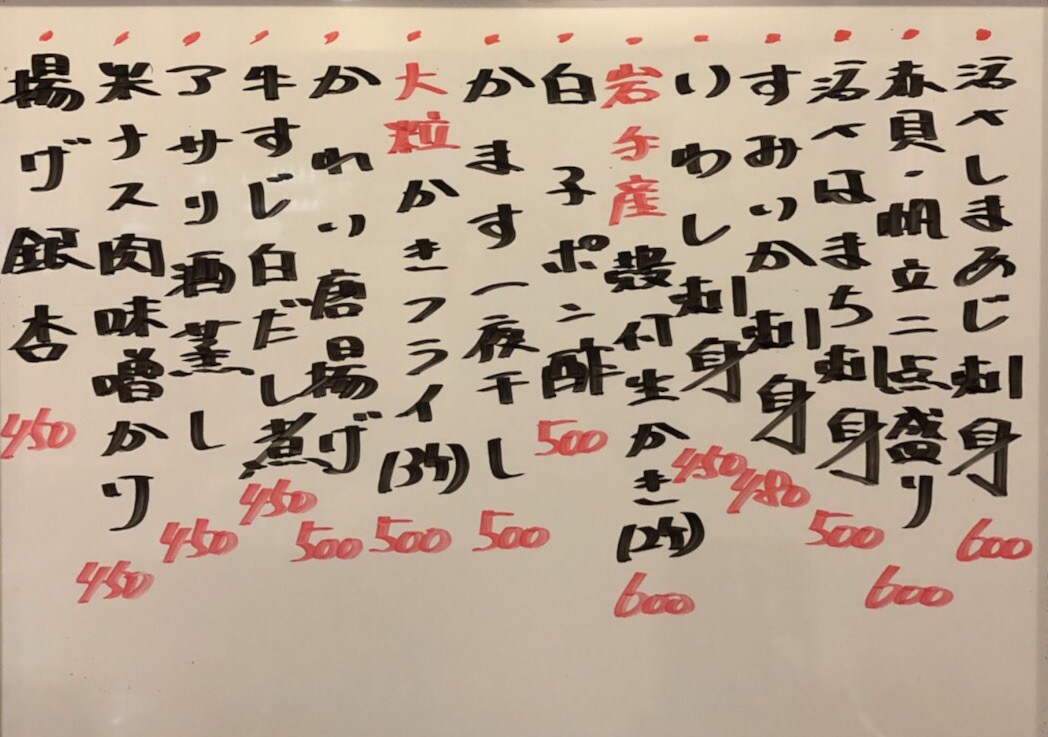 活〆しまあじ刺身 600
赤貝・帆立二点盛り 600
活〆はまち刺身 500
すみいか刺身 480
いわし刺身 450
岩手産殻付生かき(2ケ) 600
白子ポン酢 500
かます一夜干し 500
大粒かきフライ(3ケ) 500
かれい唐揚げ 500
牛すじ白だし煮 450
アサリ酒蒸し 450
米ナス肉味噌かけ 450
揚げ銀杏 450